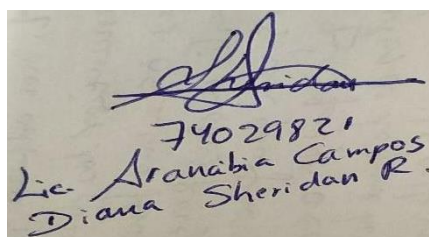 74029821
Lic. Aranabia Campos
Diana Sheridan R.